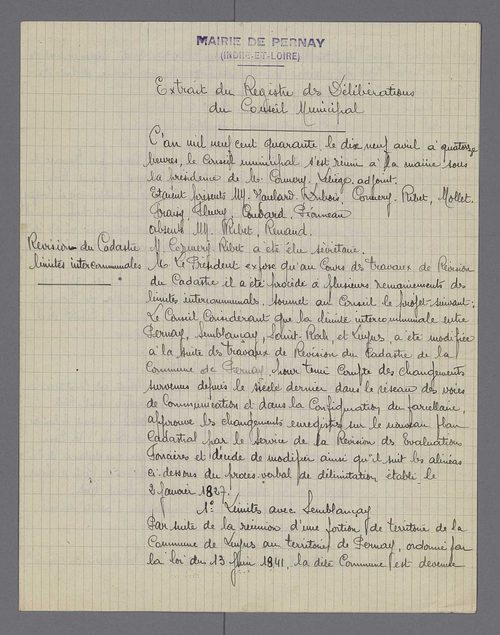 MAIRIE DE PERNAY
(INDRE-ET-LOIRE)
Extrait du Registre des Délibérations
du Conseil Municipal
L'an mil neuf cent quarante le dix neuf avril à quatorze
heures, le Conseil municipal s'est réuni à la mairie sous
la présidence de M. Connery. adjoint.
Etaient présents MM. Dubois, Connery. Ribet, Mollet.
Fleury,
absents MM. Ribet, Renand.
Revision du Cadastre
limites intercommunales
M. Connery-Ribet a été élu secrétaire.
M. Le Président expose qu'au Cours des travaux de Révision
du Cadastre il a été procédé à plusieurs remaniements des
limites intercommunales. soumet au Conseil le projet suivant:
Le Conseil Considérant que la limite intercommunale entre
Pernay, Semblançay, Saint-Roch, et Luynes, a été modifiée
à la suite des travaux de Revision du Cadastre de la
Commune de Pernay, pour tenir Compte des changements
survenus depuis le siècle dernier dans le réseau des voies
de Communication et dans la Configuration du parcellaire,
approuve les changements enregistrés sur le nouveau plan
Cadastral par le service de la Révision des Evaluations
Foncières et décide de modifier ainsi qu'il suit les alinéas
ci-dessous du procès-verbal de délimitation établi le
2 Janvier 1827.
1º Limites avec Semblançay
Par suite de la réunion d'une portion de territoire de la
Commune de Luynes au territoire de Pernay, ordonnée par
la loi du 13 Juin 1841, la dite Commune est devenue